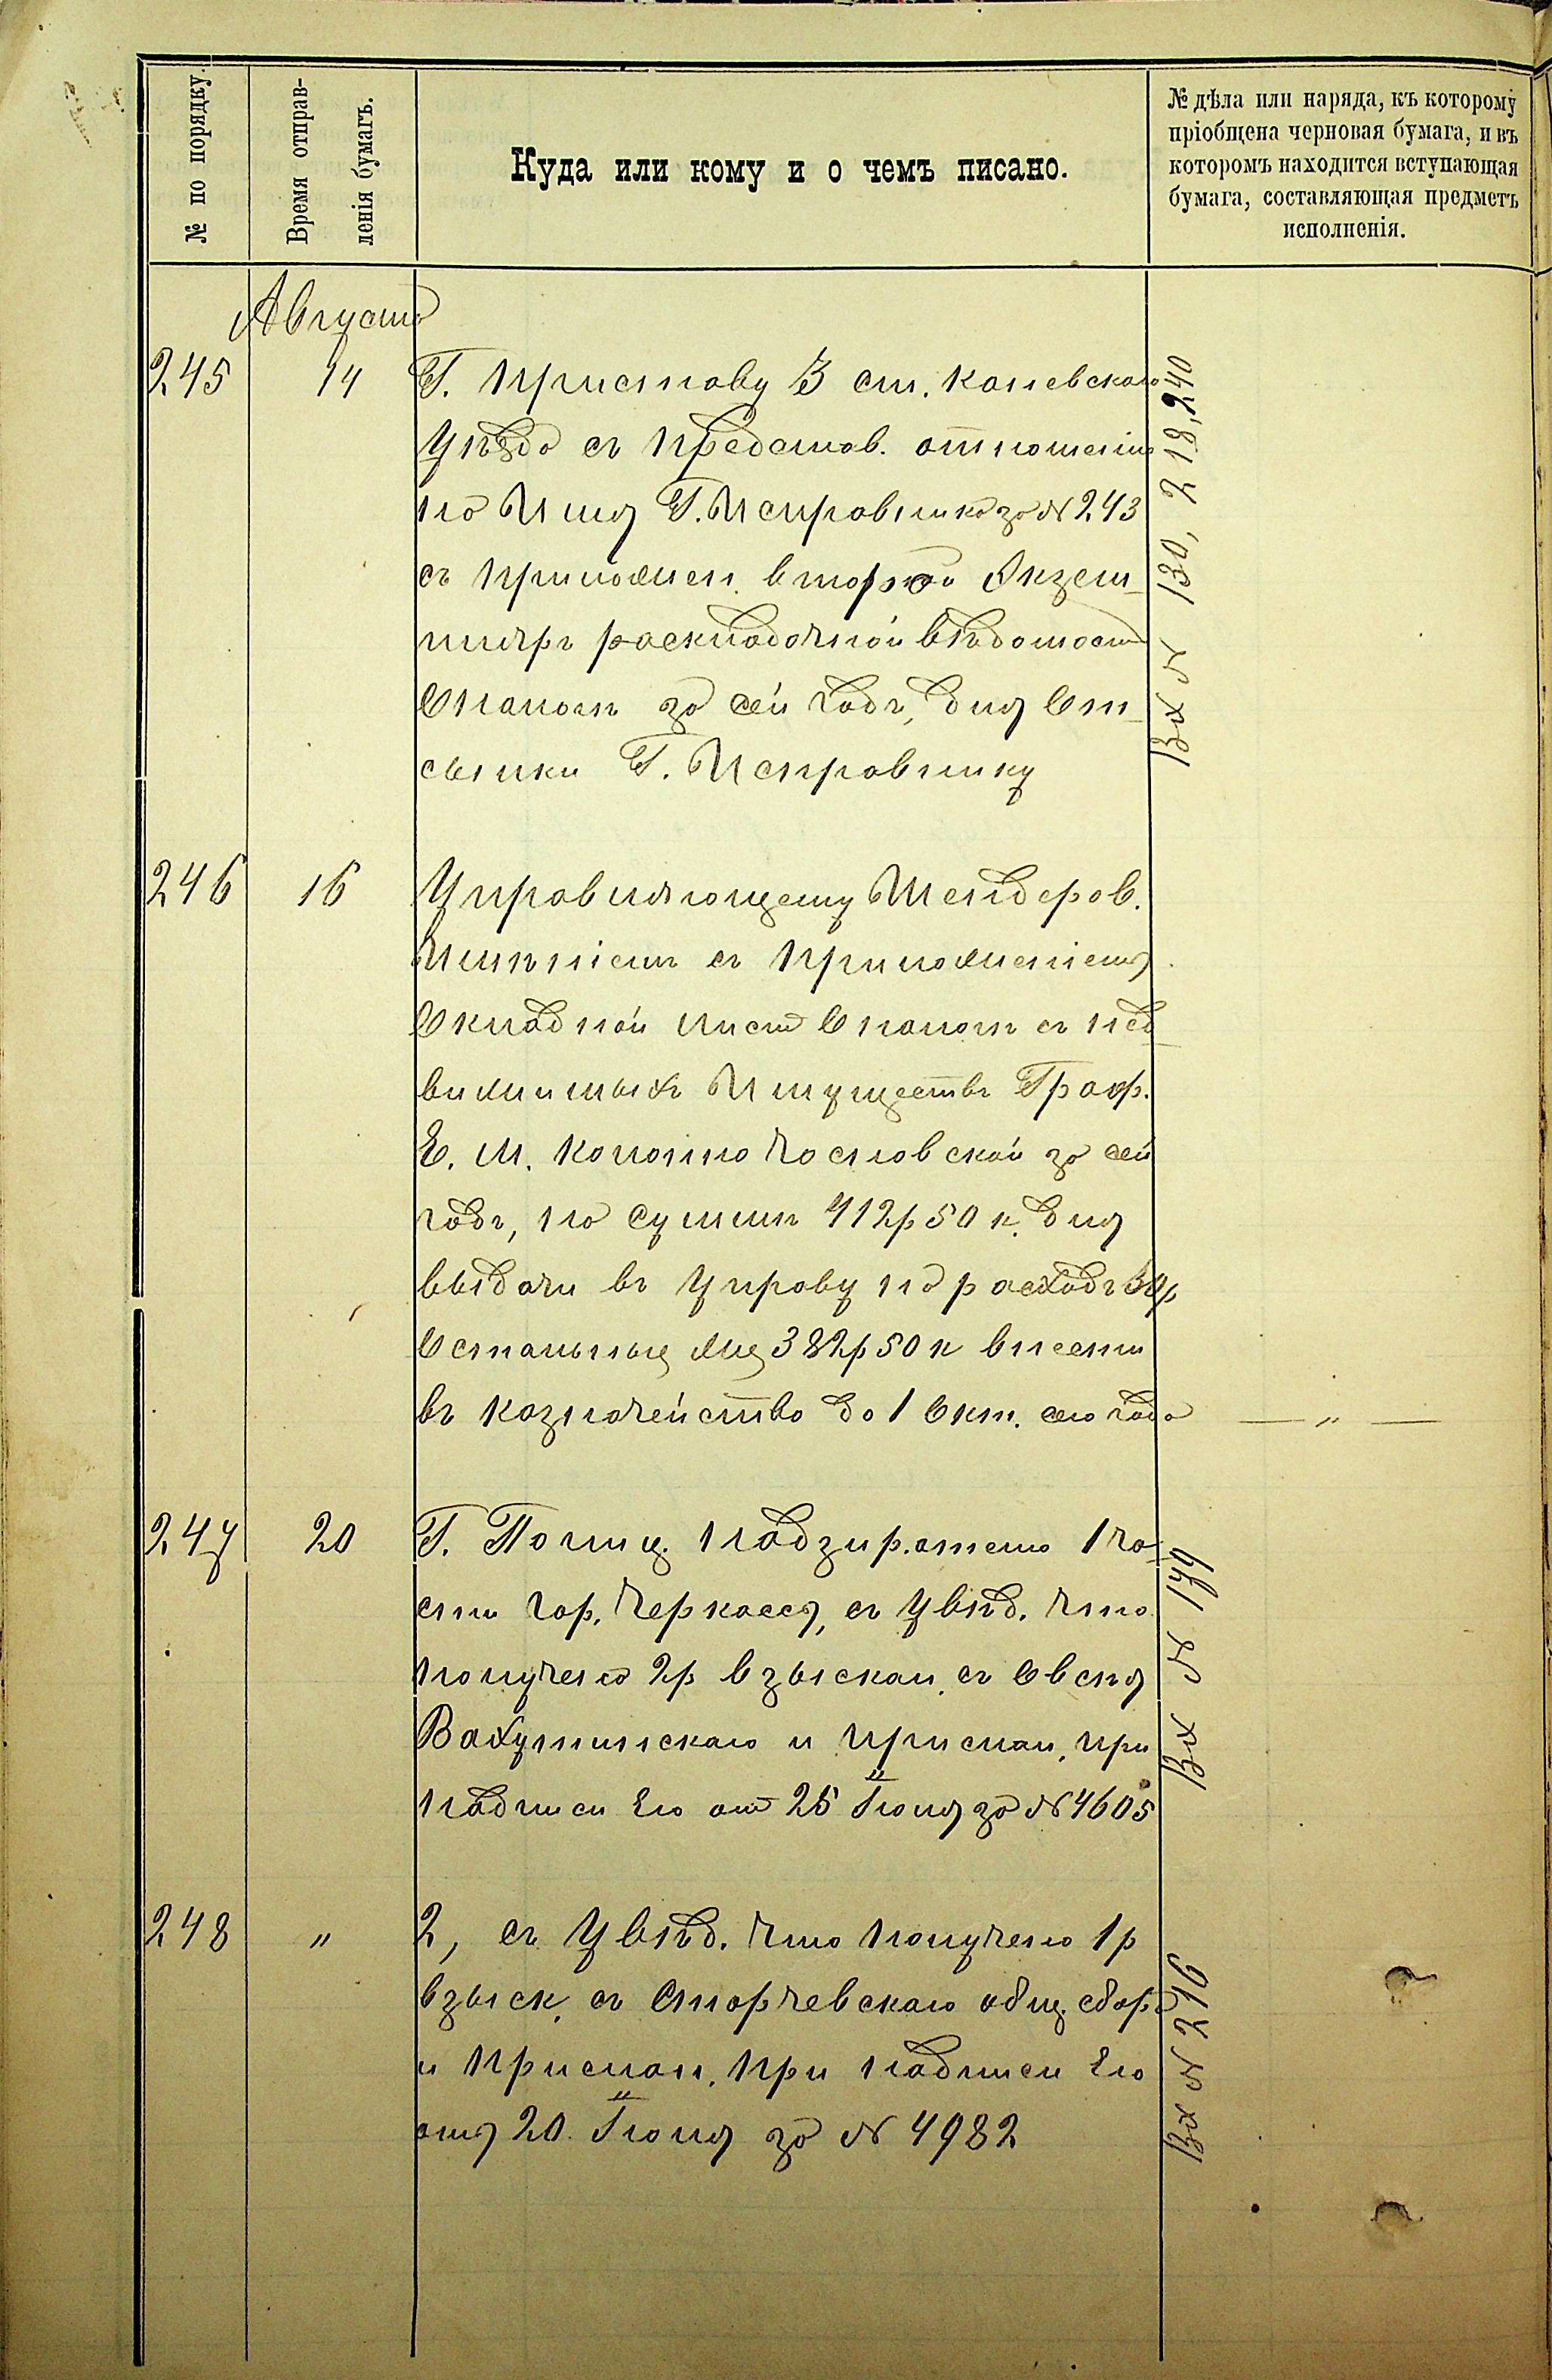 № по порядку.
Время отправ-
ленія бумагъ.
Куда или кому и о чемъ писано.
№ дѣла или наряда, къ которому
пріобщена черновая бумага, и въ
которомъ находится вступающая
бумага, составляющая предметъ
исполненія.
Августъ
245 14 Г. Приставу 3 ст. Каневскаго
Уѣзда съ представ. отношенія
на Имя Г. Исправника за № 243
съ приложен. второй Экзем-
пляръ раскладочной вѣдомост
О налогѣ за сей годъ, для От-
сылки Г. Исправнику
Вх № 130, 218, 240
246 16 Управляющему Шендеров.
Имѣніемъ съ приложеніемъ
Окладной листъ О налогѣ съ нед
вижимыхъ Имуществъ Граф.
Е. М. за сей
годъ, на сумму 412р 50 к. для
выдачи въ Управу на расходъ 30р
Остальные же 382р 50 к внести
въ казначейство до 1 Окт. сего года — „ —
247 20 Г. Полиц. надзирателю 1 ча-
сти гор. Черкассъ, съ увѣд. что
получено 2р взыскан. съ Овсея
Вахутинскаго и прислан. при
надписи Его отъ 25 Іюля за № 4605
Вх № 179
248 „ 2, съ увѣд. что получено 1р
взыск. съ Сторчевскаго общ. сбора
и прислан. при надписи Его
отъ 20 Іюля за № 4982
Вх № 216